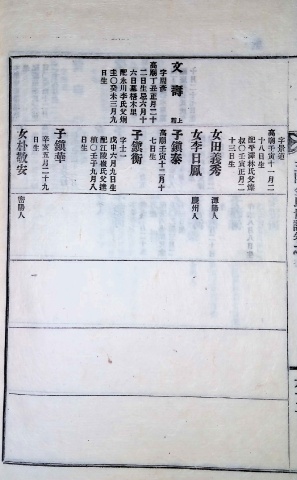 字景道
高廟壬寅十一月二
十八日生
配平澤林氏父達
叔〇壬寅正月二
十三日生
女田義秀
潭陽人
女李日鳳
慶州人
文壽
上
字周彥
高廟丁丑正月二十
二日生忌六月十
配永川李氏父炯
圭〇癸未三月九
日生
子鎭泰
高廟壬寅十二月十
七日生
子鎭衡
字士一
戊申六月九日生
配江陵崔氏父達
植〇壬子九月八
日生
子鎭華
辛亥五月二十九
日生
女朴敬安
密陽人